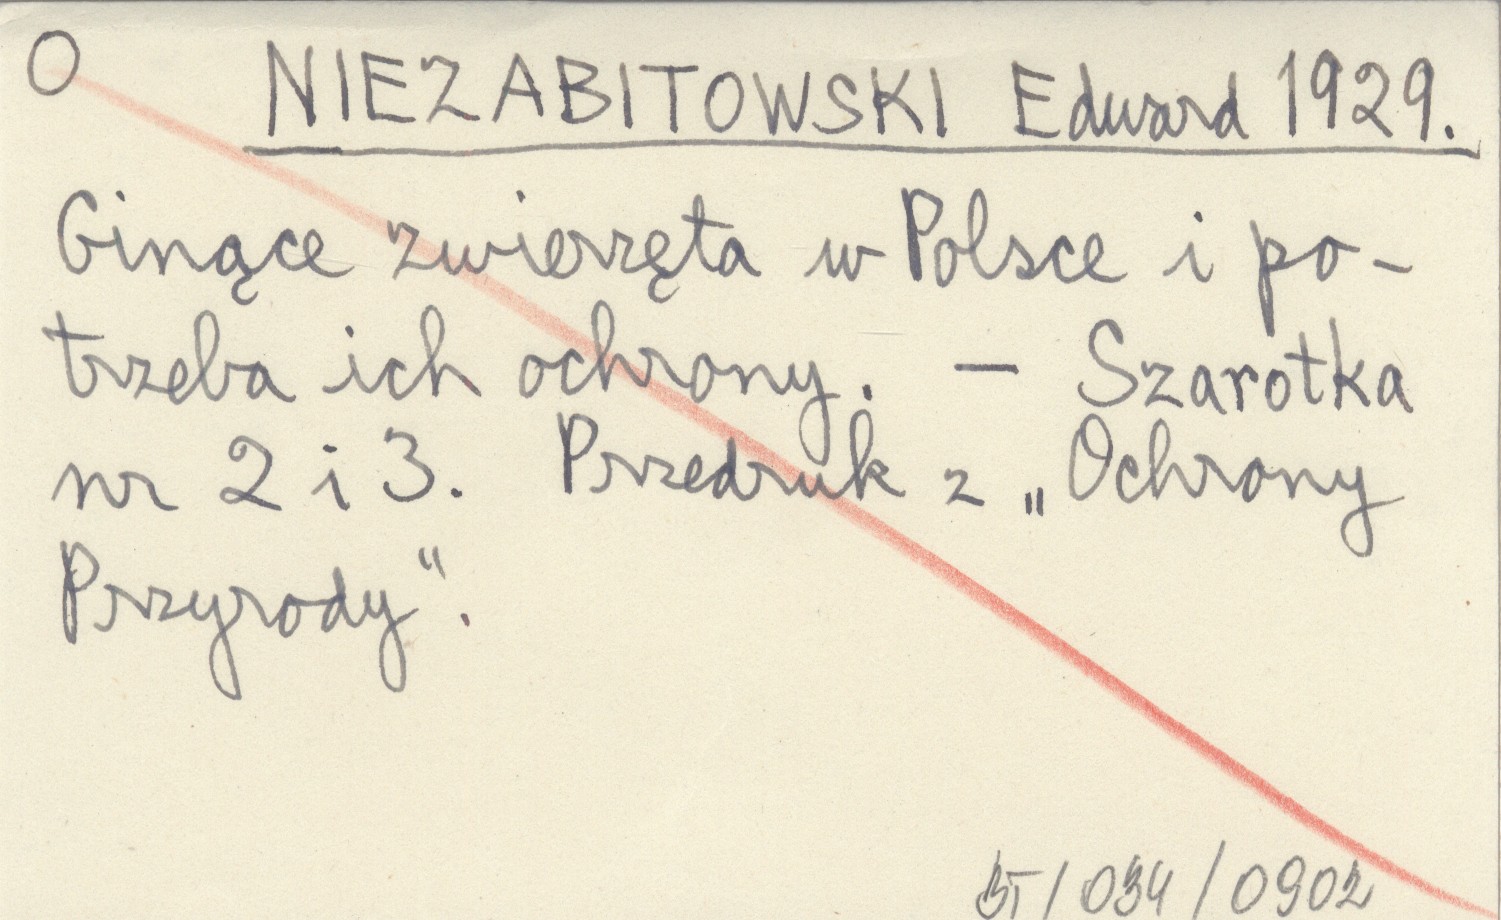 O NIEZABITOWSKI Edward 1929.
Ginące zwierzęta w Polsce i po-
trzeba ich ochrony. — Szarotka
nr 2 i 3. Przedruk z „Ochrony
Przyrody".
/034/0902